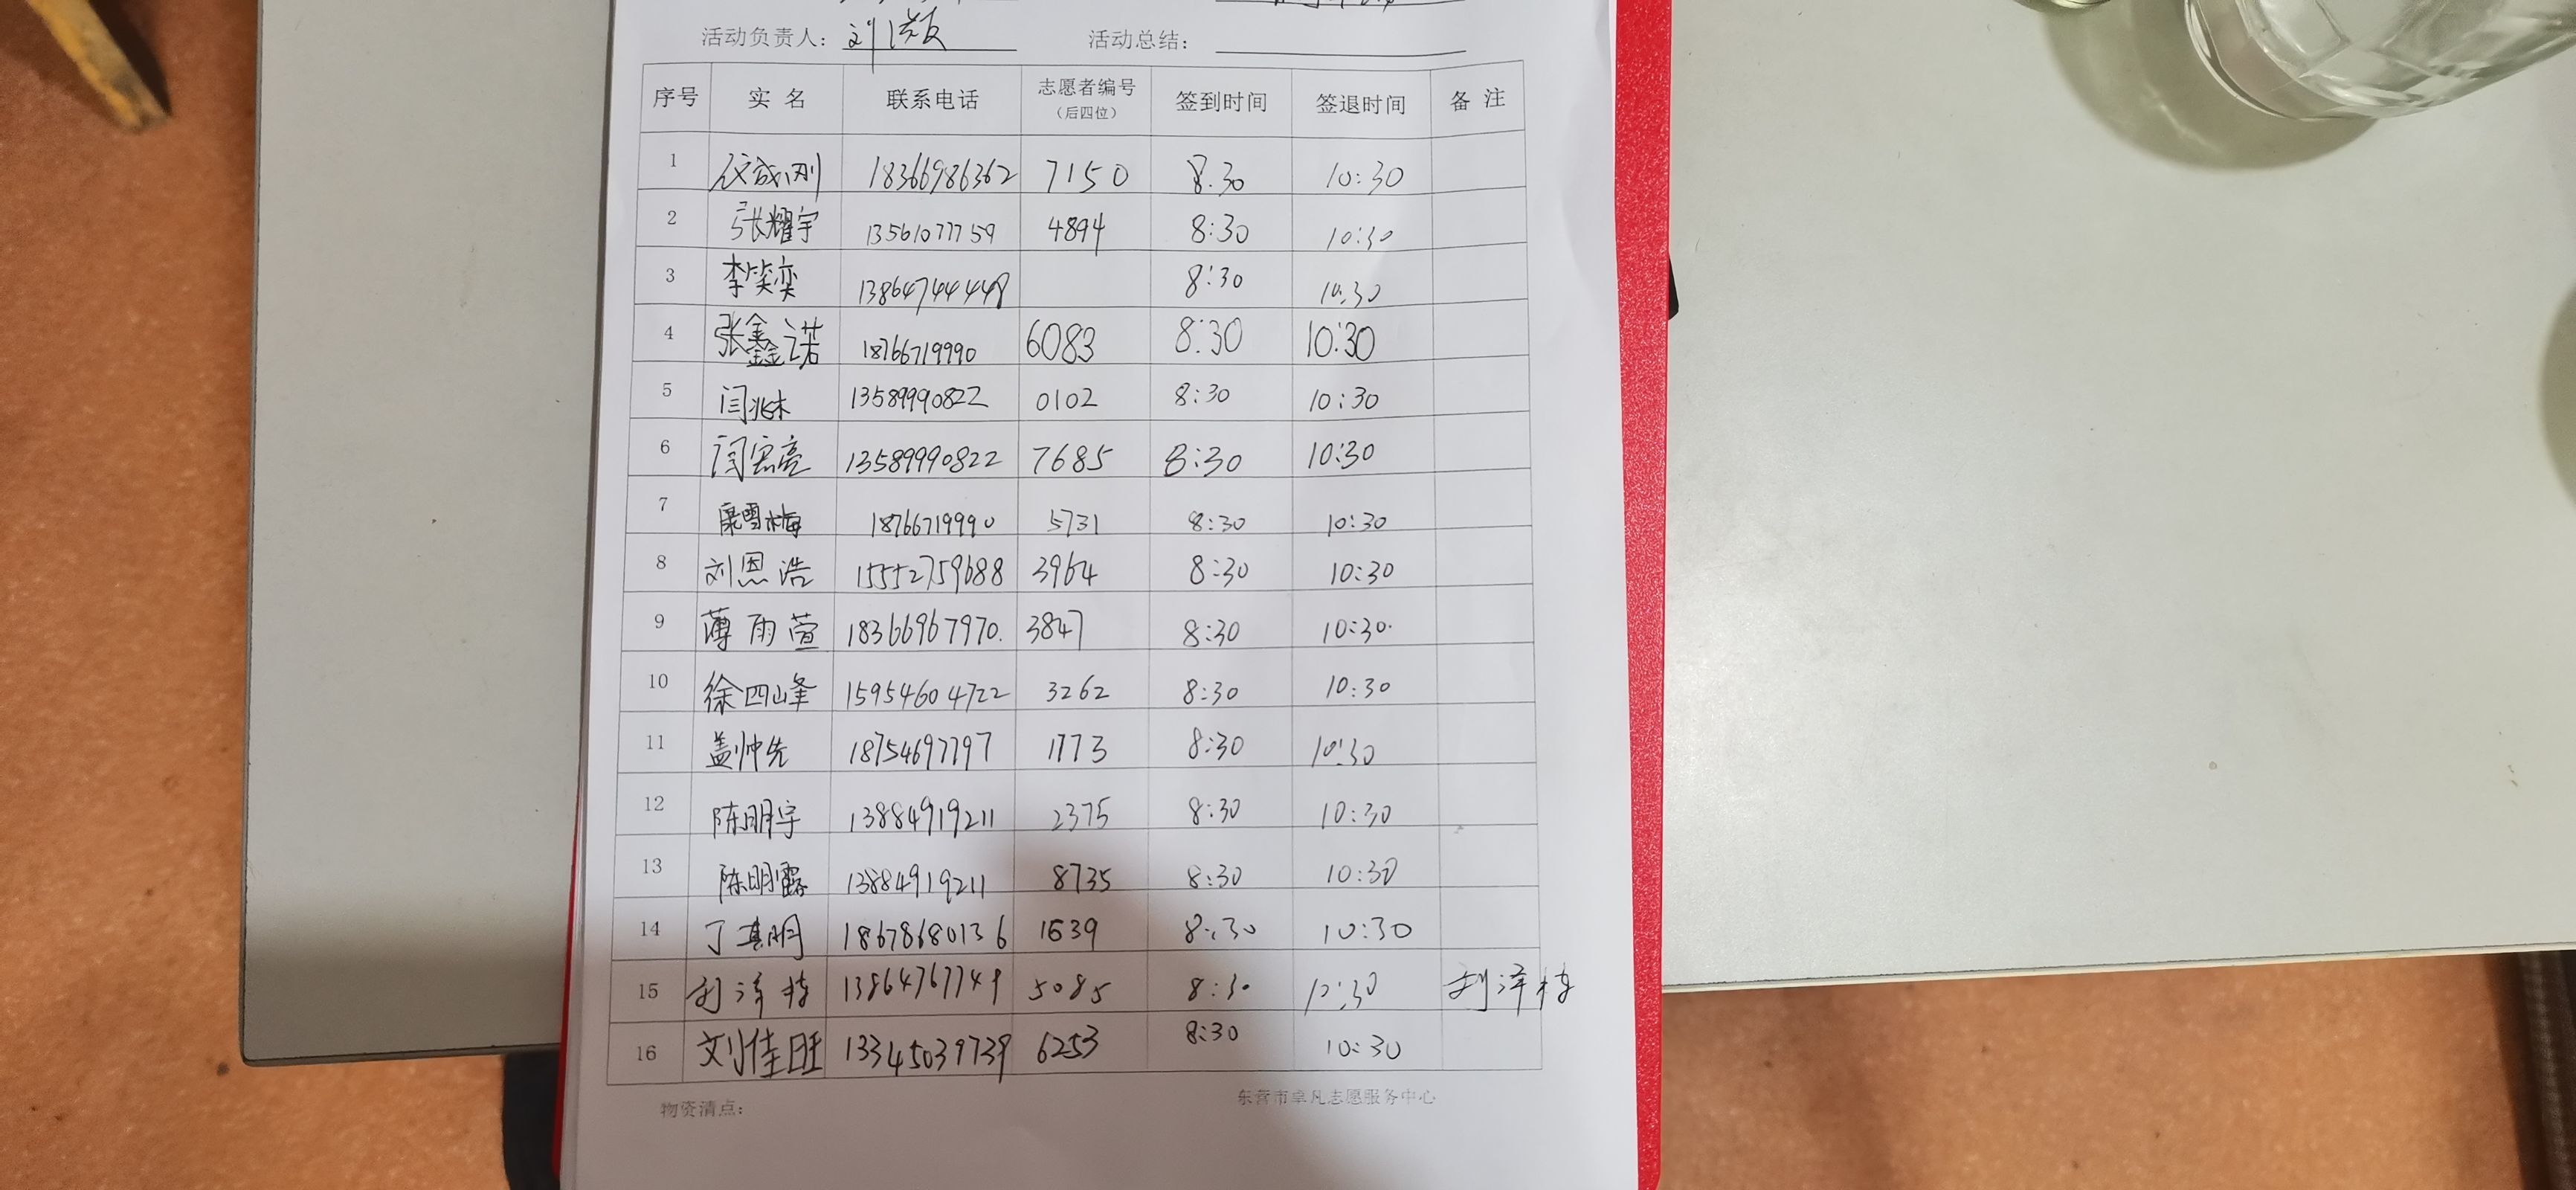 活动负责人： 活动总结：
序号 实 名 联系电话 志愿者编号 签到时间 签退时间 备 注
（后四位）
1 18366986362 7150 8.30 10:30
2 张耀宇 13561077759 4894 8:30 10:30
3 李笑奕 13864744448 8:30 10:30
4 张鑫诺 18766719990 6083 8:30 10:30
5 闫兆木 13589990822 0102 8:30 10:30
6 闫宝亮 13589990822 7685 8:30 10:30
7 雪梅 18766719990 5731 8:30 10:30
8 刘恩浩 15552759688 3964 8:30 10:30
9 薄雨萱 18366967970. 3847 8:30 10:30.
10 徐四峰 15954604722 3262 8:30 10:30
11 盖帅先 18754697797 1773 8:30 10:30
12 陈明宇 13884919211 2375 8:30 10:30
13 陈明露 13884919211 8735 8:30 10:30
14 丁其明 18678680136 1639 8:30 10:30
15 刘泽 13864767749 5085 8:30 10:30 刘泽
16 刘佳旺 13345039739 6253 8:30 10:30
物资清点： 东营市卓凡志愿服务中心